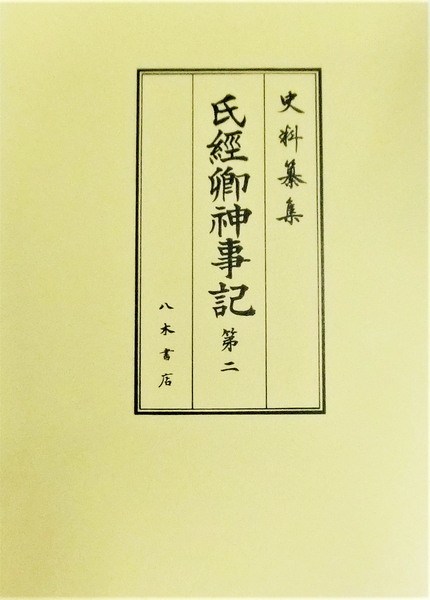 史料纂集
氏經卿神事記 第二
八木書店